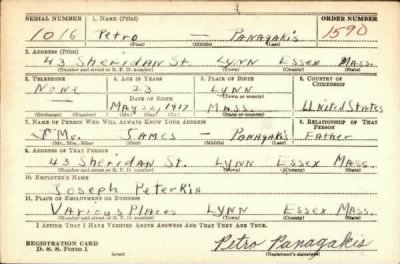 SERIAL NUMBER 1. NAME (Print) ORDER NUMBER
1016 Petro — Panagakis 1590
(First) (Middle) (Last)
2. ADDRESS (Print)
43 Sheridan St. Lynn Essex Mass.
(Number and street or R. F. D. number) (Town) (County) (State)
3. TELEPHONE 4. AGE IN YEARS 5. PLACE OF BIRTH 6. COUNTRY OF CITIZENSHIP
None 23 Lynn
DATE OF BIRTH (Town or county)
— May 22, 1917 Mass. United States
(Exchange) (No.) (Mo.) (Day) (Yr.) (State or country)
7. NAME OF PERSON WHO WILL ALWAYS KNOW YOUR ADDRESS 8. RELATIONSHIP OF THAT PERSON
Mr. James — Panagakis Father
(Mr., Mrs., Miss) (First) (Middle) (Last)
9. ADDRESS OF THAT PERSON
43 Sheridan St. Lynn Essex Mass.
(Number and street or R. F. D. number) (Town) (County) (State)
10. EMPLOYER'S NAME
Joseph Peterkin
11. PLACE OF EMPLOYMENT OR BUSINESS
Various Places Lynn Essex Mass.
(Number and street or R. F. D. number) (Town) (County) (State)
I AFFIRM THAT I HAVE VERIFIED ABOVE ANSWERS AND THAT THEY ARE TRUE.
REGISTRATION CARD
D. S. S. Form 1 (over) Petro Panagakis
(Registrant's signature)